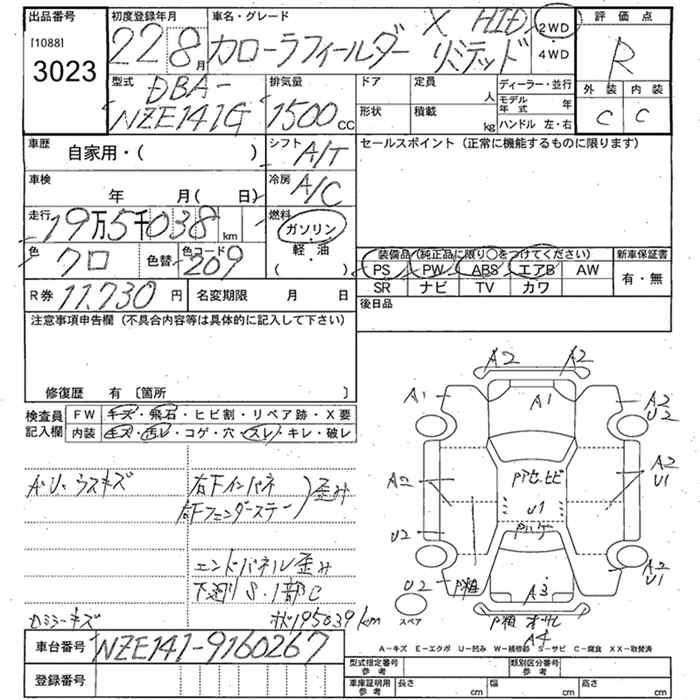 出品番号 初度登録年月 車名・グレード 評価点
[1088]
3023
22 8月 カローラフィールダー X HID リミテッド
2WD
4WD
R
型式 排気量 ドア 定員 人 ディーラー・並行
モデル年式 年
外装 内装
DBA-
NZE141G 1500cc
形状 積載 kg ハンドル 左・右
C C
車歴 自家用・( ) シフト A/T セールスポイント (正常に機能するものに限ります)
車検 年 月( 日) 冷房 A/C
走行 19万5千038km 燃料 ガソリン・軽・油 ( )
色 クロ 色替 色コード 209
装備品 (純正品に限り○をつけてください) 新車保証書
PS PW ABS エアB AW 有・無
SR ナビ TV カワ
R券 11.730円 名変期限 月 日
後日品
注意事項申告欄 (不具合内容等は具体的に記入して下さい)
修復歴 有 〔箇所 〕
検査員記入欄 FW キズ・飛石・ヒビ割・リペア跡・X要
内装 キズ・汚レ・コゲ・穴・スレ・キレ・破レ
A・U・ウスキズ
右下インパネ
右下フェンダーステー 歪み
エンドパネル歪み
下廻りS・1部C
ロミラーキズ
状195039km
A2 A2
A1 A1 A2
U2
A2 Pアセ.ヒビ A2
U1 U1
U2
A2
U1
U2 P粗 A3
スペア
A4
A-キズ E-エクボ U-凹み W-補修跡 S-サビ C-腐食 XX-取替済
車台番号 NZE141-9160267
登録番号
型式指定番号 参考 類別区分番号 参考
車庫証明用 参考 長さ cm 幅 cm 高さ cm